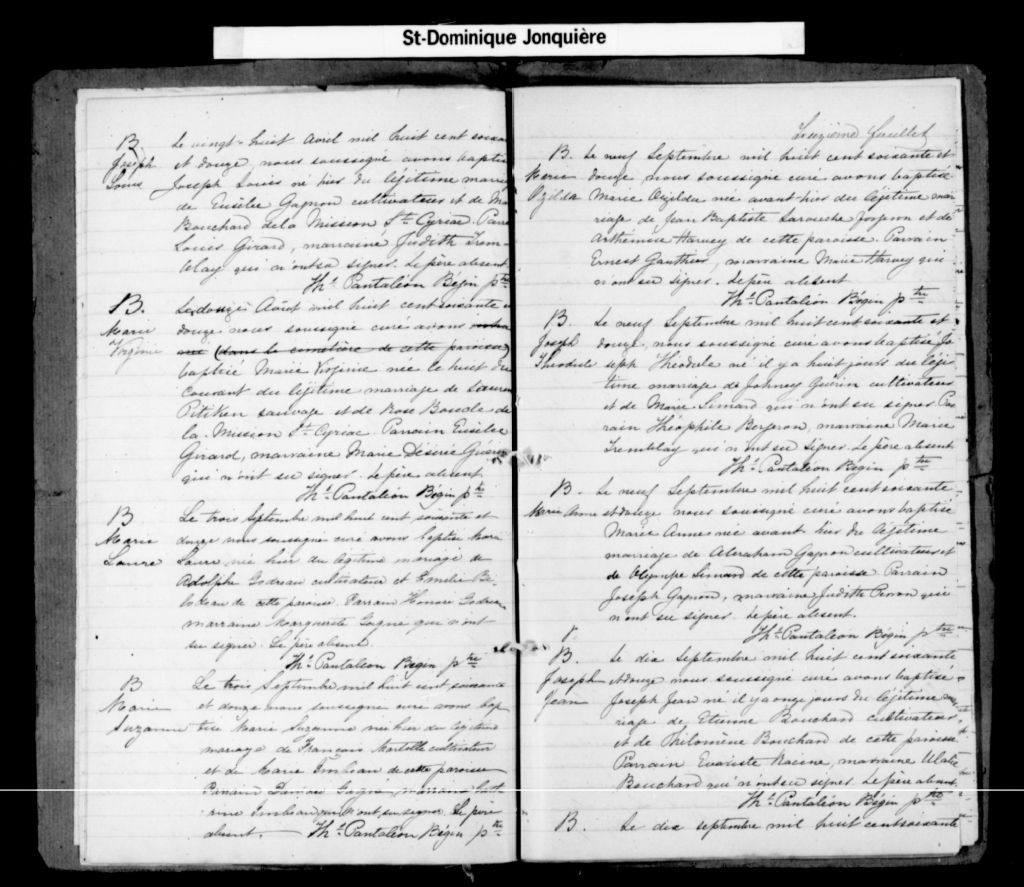 St-Dominique Jonquière
B. Le vingt-huit Avril mil huit cent soixan
Joseph et douze, nous soussigné avons baptisé
Louis Joseph Louis né hier du légitime maria
de Eusèbe Gagnon cultivateur et de Ma
Bouchard de la Mission St. Cyriac. Parra
Louis Girard, marraine Judith Trem-
blay qui n'ont su signer. Le père absent
Ths. Pantaléon Bégin ptre
B. Le douze Août mil huit cent soixante e
Marie douze nous soussigné curé avons
Virginie (dans le cimetière de cette paroisse)
baptisé Marie Virginie née le huit du
courant du légitime mariage de
Pitiken sauvage et de Rose Boucle de
la Mission St. Cyriac. Parrain Eusèbe
Girard, marraine Marie Désirée Guérin
qui n'ont su signer. Le père absent
Ths. Pantaléon Bégin ptre
B Le trois Septembre mil huit cent soixante et
Marie douze nous soussigné curé avons baptisé Marie
Laure Laure née hier du légitime mariage de
Adolphe Godreau cultivateur et Emélie Bi
lodeau de cette paroisse. Parrain Honoré Godreau
marraine Marguerite Gagné qui n'ont
su signer. Le père absent.
Ths. Pantaléon Bégin ptre
B Le trois Septembre mil huit cent soixante
Marie et douze nous soussigné curé avons bap
Suzanne tisé Marie Suzanne née hier du légitime
mariage de François cultivateur
et de Marie Imbeau de cette paroisse
Parrain Damase Gagné, marraine Cath
erine Imbeau qui n'ont su signer. Le père
absent. Ths. Pantaléon Bégin ptre
Treizième feuillet
B. Le neuf Septembre mil huit cent soixante et
Marie douze, nous soussigné curé avons baptisé
Ozilda Marie Ozilda née avant hier du légitime ma-
riage de Jean Baptiste Larouche forgeron et de
Arthémise Harvey de cette paroisse. Parrain
Ernest Gauthier, marraine Marie Harvey qui
n'ont su signer. Le père absent
Ths. Pantaléon Bégin ptre
B. Le neuf Septembre mil huit cent soixante et
Joseph douze, nous soussigné curé avons baptisé Jo
Théodule seph Théodule né il y a huit jours du légi-
time mariage de Johney Guérin cultivateur
et de Marie Simard qui n'ont su signer. Par
rain Théophile Bergeron, marraine Marie
Tremblay qui n'ont su signer. Le père absent
Ths. Pantaléon Bégin ptre
B. Le neuf Septembre mil huit cent soixante
Marie Anne et douze nous soussigné curé avons baptisé
Marie Anne née avant hier du légitime
mariage de Abraham Gagnon cultivateur et
de Olympe Simard de cette paroisse. Parrain
Joseph Gagnon, marraine Judith Perron qui
n'ont su signer. Le père absent.
Ths. Pantaléon Bégin ptre
B. Le dix Septembre mil huit cent soixante
Joseph et douze nous soussigné curé avons baptisé
Jean Joseph Jean né il y a onze jours du légitime ma
riage de Etienne Bouchard cultivateur
et de Philomène Bouchard de cette paroisse
Parrain Evariste Racine, marraine
Bouchard qui n'ont su signer. Le père absent.
Ths. Pantaléon Bégin ptre
B. Le dix septembre mil huit cent soixante